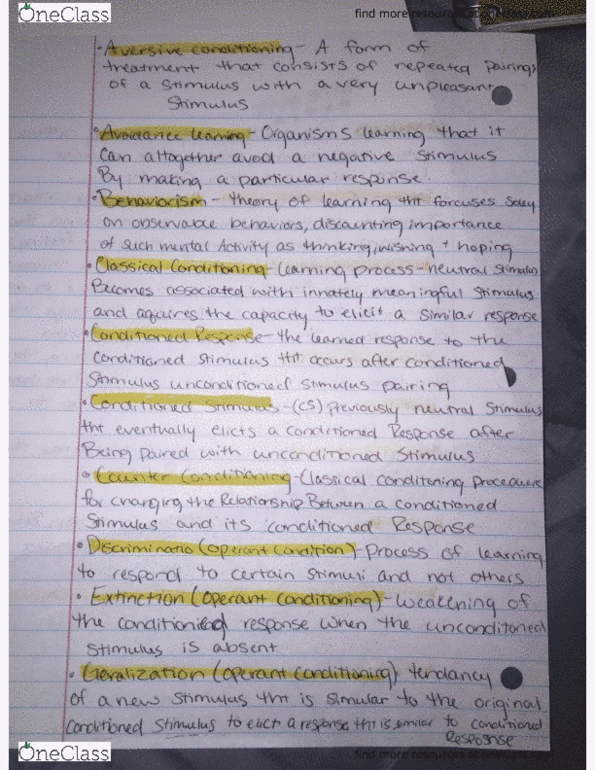 OneClass
find more resources at oneclass.com
• Aversive conditioning - A form of
treatment that consists of repeated pairings
of a Stimulus with a very unpleasant
Stimulus
• Avoidance learning - Organisms learning that it
Can altogether avod a negative Stimulus
By making a particular response.
• Behaviorism - theory of learning tht forcuses Soley
on observable behaviors, discounting importance
of Such mental Activity as thinking, wishing + hoping
• Classical Conditioning - Learning process - neutral Stimulus
Becomes associated with innately meaningful Stimulus
and aquires the capacity to elicit a Similar response
• Conditioned Response - the learned response to the
Conditioned Stimulus tht occurs after conditioned
Stimulus unconditioned Stimulus pairing
• Conditioned Stimulus - (CS) Previously neutral Stimulus
tht eventually elicts a conditioned Response after
Being paired with unconditioned Stimulus
• Counter Conditioning - Classical conditoning procedure
for changing the Relationship Betwen a conditioned
Stimulus and its conditioned Response
• Discriminatio (operant condition) - Process of learning
to respond to certain Stimuli and not others
• Extinction (operant conditioning) - weakening of
the conditioned response when the unconditoned
Stimulus is absent
• Geralization (operant conditioning) tendancy
of a new Stimulus tht is Simular to the original
Conditioned Stimulus to elict a response tht is similar to conditioned
Response
OneClass
find more resources at oneclass.com